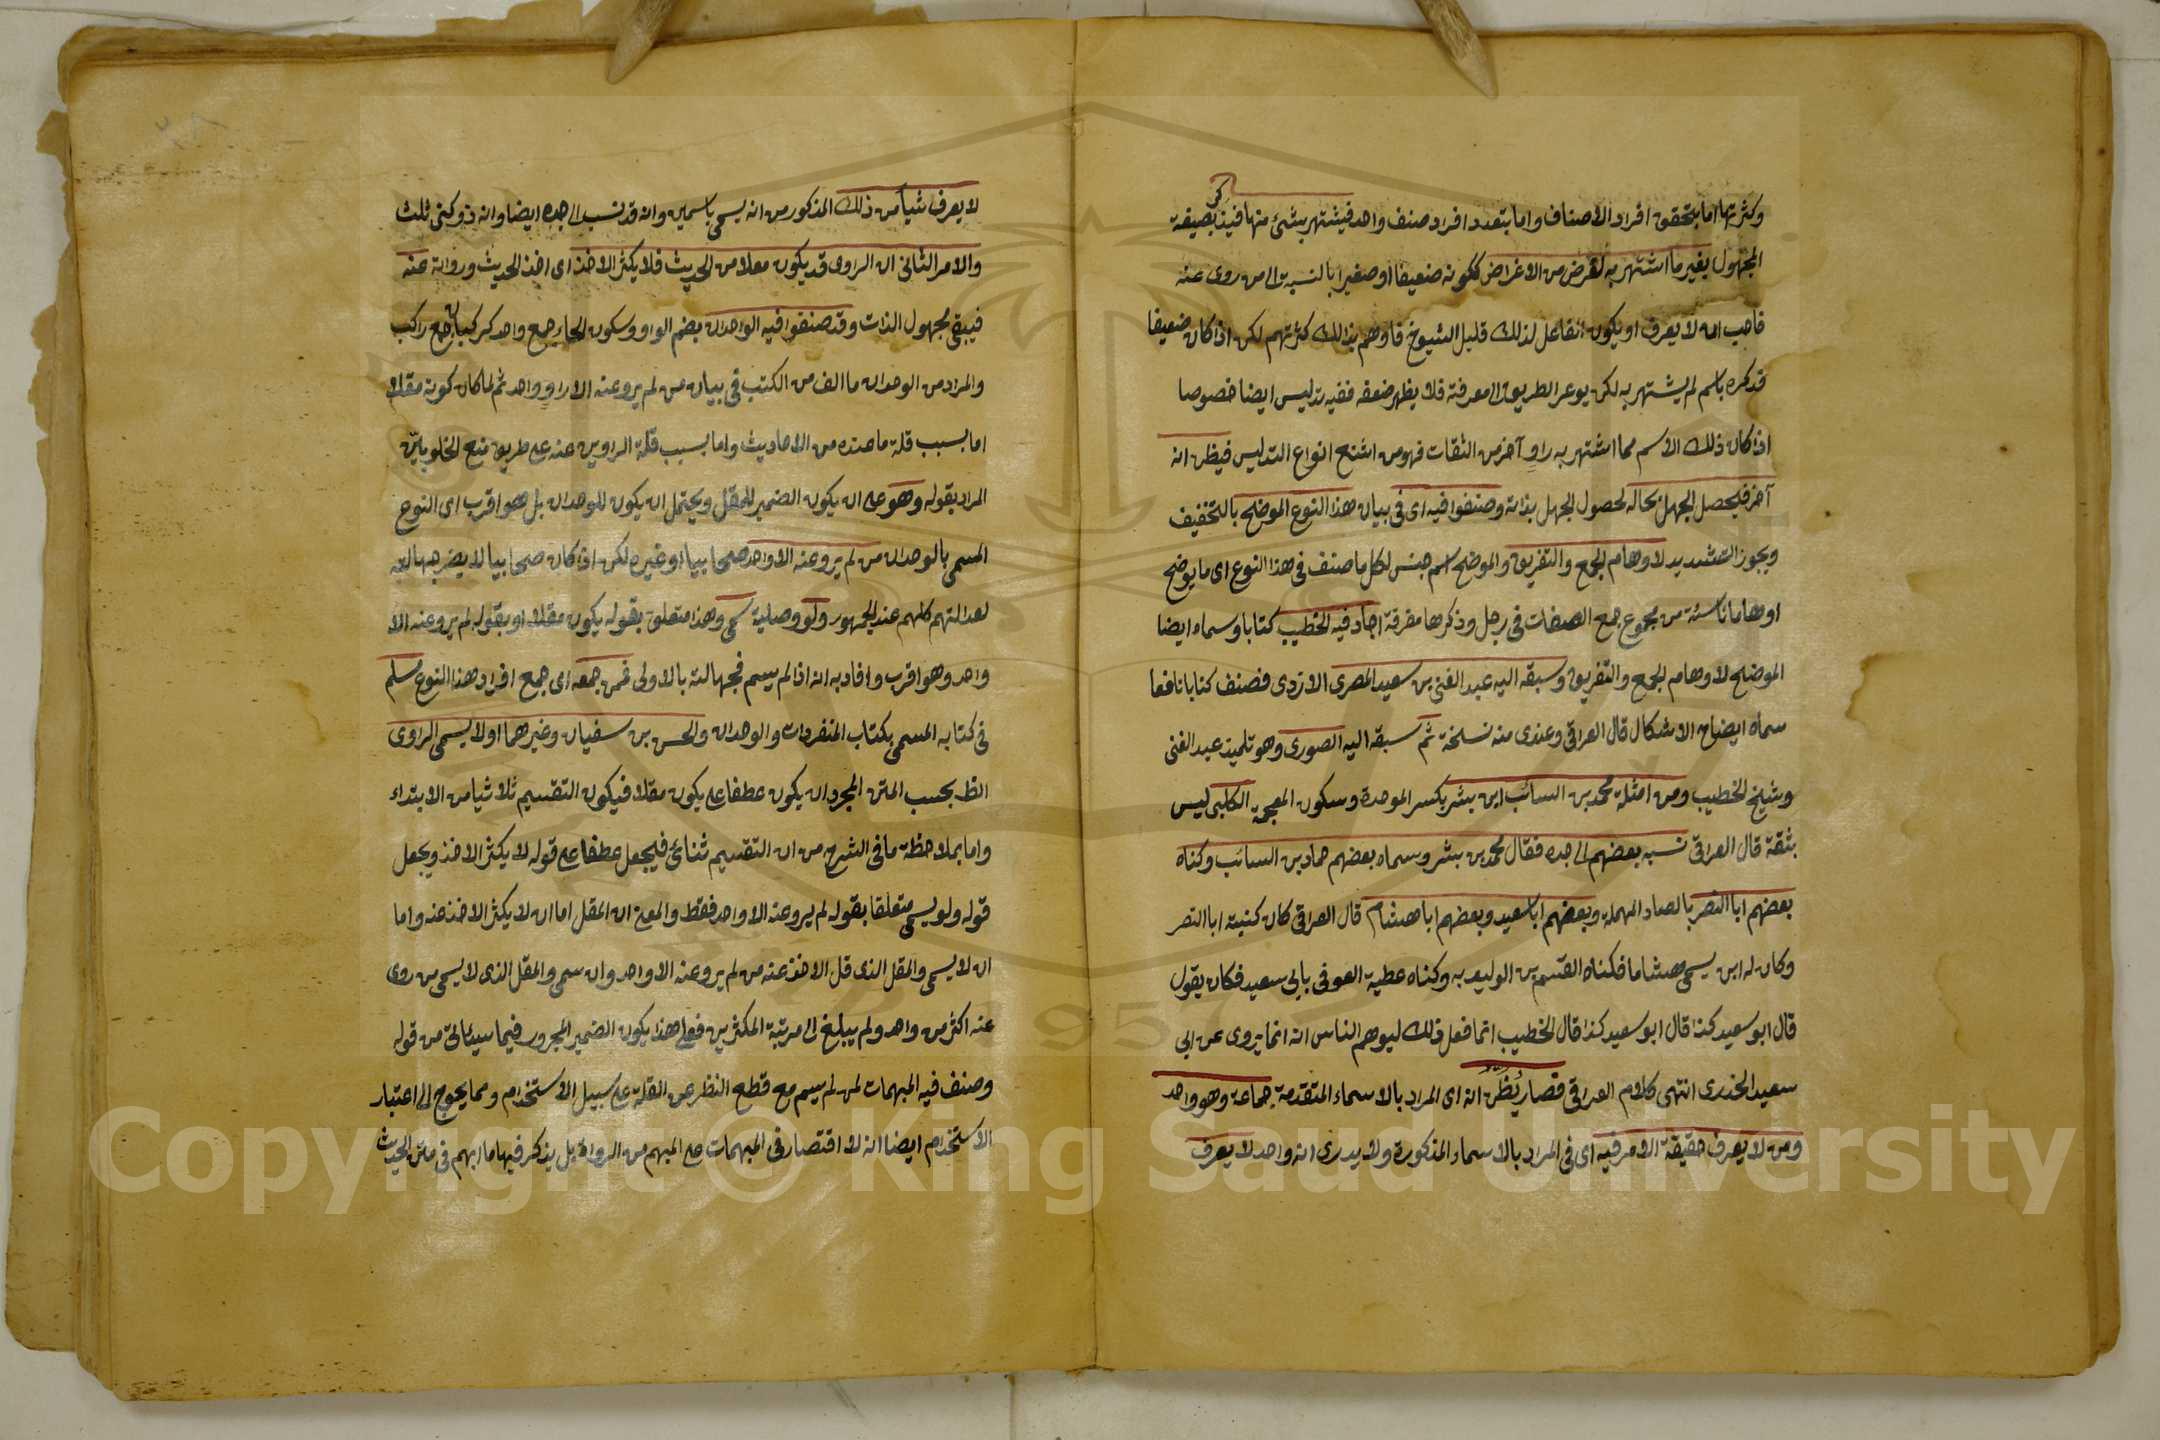 وكثرتها اما بتحقق افراد الاصناف واما بتعدد افراد صنف واحد فيشتهر بشئ منها فيذكر بصيغة
المجهول بغير ما اشتهر به لغرض من الاغراض ككونه ضعيفا او صغيرا بالنسبة الى من روى عنه
فاحب انه لا يعرف او يكون الفاعل لذلك قليل الشيوخ فاوهم بذلك كثرتهم لكن اذا كان ضعيفا
فذكره باسم لم يشتهر به لكن يوعر الطريق الى معرفة فلا يظهر ضعفه ففيه تدليس ايضا خصوصا
اذا كان ذلك الاسم مما اشتهر به راو آخر من الثقات فهو من اشنع انواع التدليس فيظن انه
آخر فيحصل الجهل بحاله لحصول الجهل بذاته وصنفوا فيه اى فى بيان هذا النوع الموضح بالتخفيف
ويجوز التشديد لاوهام الجمع والتفريق والموضح اسم جنس لكل ما صنف فى هذا النوع اى ما يوضح
اوهاما ناشئة من مجموع جمع الصفات فى رجل وذكرها مفرقة اجاد فيه الخطيب كتابا وسماه ايضا
الموضح لاوهام الجمع والتفريق وسبقه اليه عبد الغنى بن سعيد المصرى الازدى فصنف كتابا نافعا
سماه ايضاح الاشكال قال العراقى وعندى منه نسخة ثم سبقه اليه الصورى وهو تلميذ عبد الغنى
وشيخ الخطيب ومن امثلة محمد بن السائب ابن بشر بكسر الموحدة وسكون المعجمة الكلبى ليس
بثقة قال العراقى نسبه بعضهم الى جده فقال محمد بن بشر وسماه بعضهم حماد بن السائب وكناه
بعضهم ابا النصر بالصاد المهملة وبعضهم ابا سعيد وبعضهم ابا هشام قال العراقى كان كنيته ابا النصر
وكان له ابن يسمى هشاما فكناه القسم بن الوليد به وكناه عطية العوفى بابى سعيد فكان يقول
قال ابو سعيد كذا قال ابو سعيد كذا قال الخطيب انما فعل ذلك ليوهم الناس انه انما يروى عن ابى
سعيد الخدرى انتهى كلام العراقى فصار يظن انه اى المراد بالاسماء المتقدمة جماعة وهو واحد
ومن لا يعرف حقيقة الامر فيه اى فى المراد بالاسماء المذكورة ولا يدرى انه واحد لا يعرف
لا يعرف شيأ من ذلك المذكور من انه يسمى باسمين وانه قد نسب الى جده ايضا وانه ذو كنى ثلث
والامر الثانى ان الراوى قد يكون مقلا من الحديث فلا يكثر الاخذ اى اخذ الحديث وروايته عنه
فيبقى مجهول الذات وقد صنفوا فيه الوحدان بضم الواو وسكون الحاء جمع واحد كركبان جمع راكب
والمراد من الوحدان ما الف من الكتب فى بيان من لم يرو عنه الا راو واحد ثم لما كان كونه مقلا
اما بسبب قلة ما عنده من الاحاديث واما بسبب قلة الراوين عنه على طريق منع الخلو بيّن
المراد بقوله وهو على ان يكون الضمير للمقل ويحتمل ان يكون للوحدان بل هو اقرب اى النوع
المسمى بالوحدان من لم يرو عنه الا واحد صحابيا او غيره لكن اذا كان صحابيا لا يضر جهالته
لعدالتهم كلهم عند الجمهور ولو وصلية سمى وهذا متعلق بقوله يكون مقلا او بقوله لم يرو عنه الا
واحد وهو اقرب وافاد به انه اذا لم يسم فجهالته بالاولى فمن جمعه اى جمع افراد هذا النوع مسلم
فى كتابه المسمى بكتاب المنفردات والوحدان والحسن بن سفيان وغيرهما او لا يسمى الراوى
الظ بحسب المتن المجرد ان يكون عطفا على يكون مقلا فيكون التقسيم ثلاثيا من الابتداء
واما بملاحظة ما فى الشرح من ان التقسيم ثنائى فيجعل عطفا على قوله لا يكثر الاخذ ويجعل
قوله ولو يسمى متعلقا بقوله لم يرو عنه الا واحد فقط والمعنى ان المقل اما ان لا يكثر الاخذ عنه واما
ان لا يسمى والمقل الذى قل الاخذ عنه من لم يرو عنه الا واحد وان سمى والمقل الذى لا يسمى من روى
عنه اكثر من واحد ولم يبلغ الى مرتبة المكثرين فعلى هذا يكون الضمير المجرور فيما سيئاتى من قوله
وصنف فيه المبهمات لمن لم يسم مع قطع النظر عن القلة على سبيل الاستخدام ومما يحوج الى اعتبار
الاستخدام ايضا انه لا اقتصار فى المبهمات على المبهم من الرواة بل يذكر فيها ما ابهم فى متن الحديث
Copyright © King Saud University
1957